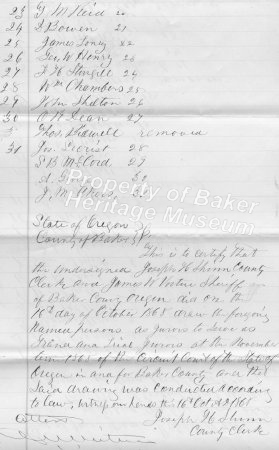 23 G M Reid 20
24 J Bowen 21
25 James Toney 22
26 Geo W Henry 23
27 24
28 Wm Chambers 25
29 John Shelton 26
30 Dean 27
removed
31 28
S B McCord 29
J. M.
Property of Baker
Heritage Museum
State of Oregon
County of Baker
This is to certify that
the undersigned Joseph H Shinn County
Clerk and James W Sheriff
of Baker County Oregon did on the
16th day of October 1868 draw the foregoing
named persons as Jurors to serve as
Grand and Trial Jurors at the November
term 1868 of the Circuit Court of the State of
Oregon in and for Baker County and the
said drawing was conducted according
to law, witness our hands this 16th Oct AD 1868
Attest Joseph H Shinn
County Clerk